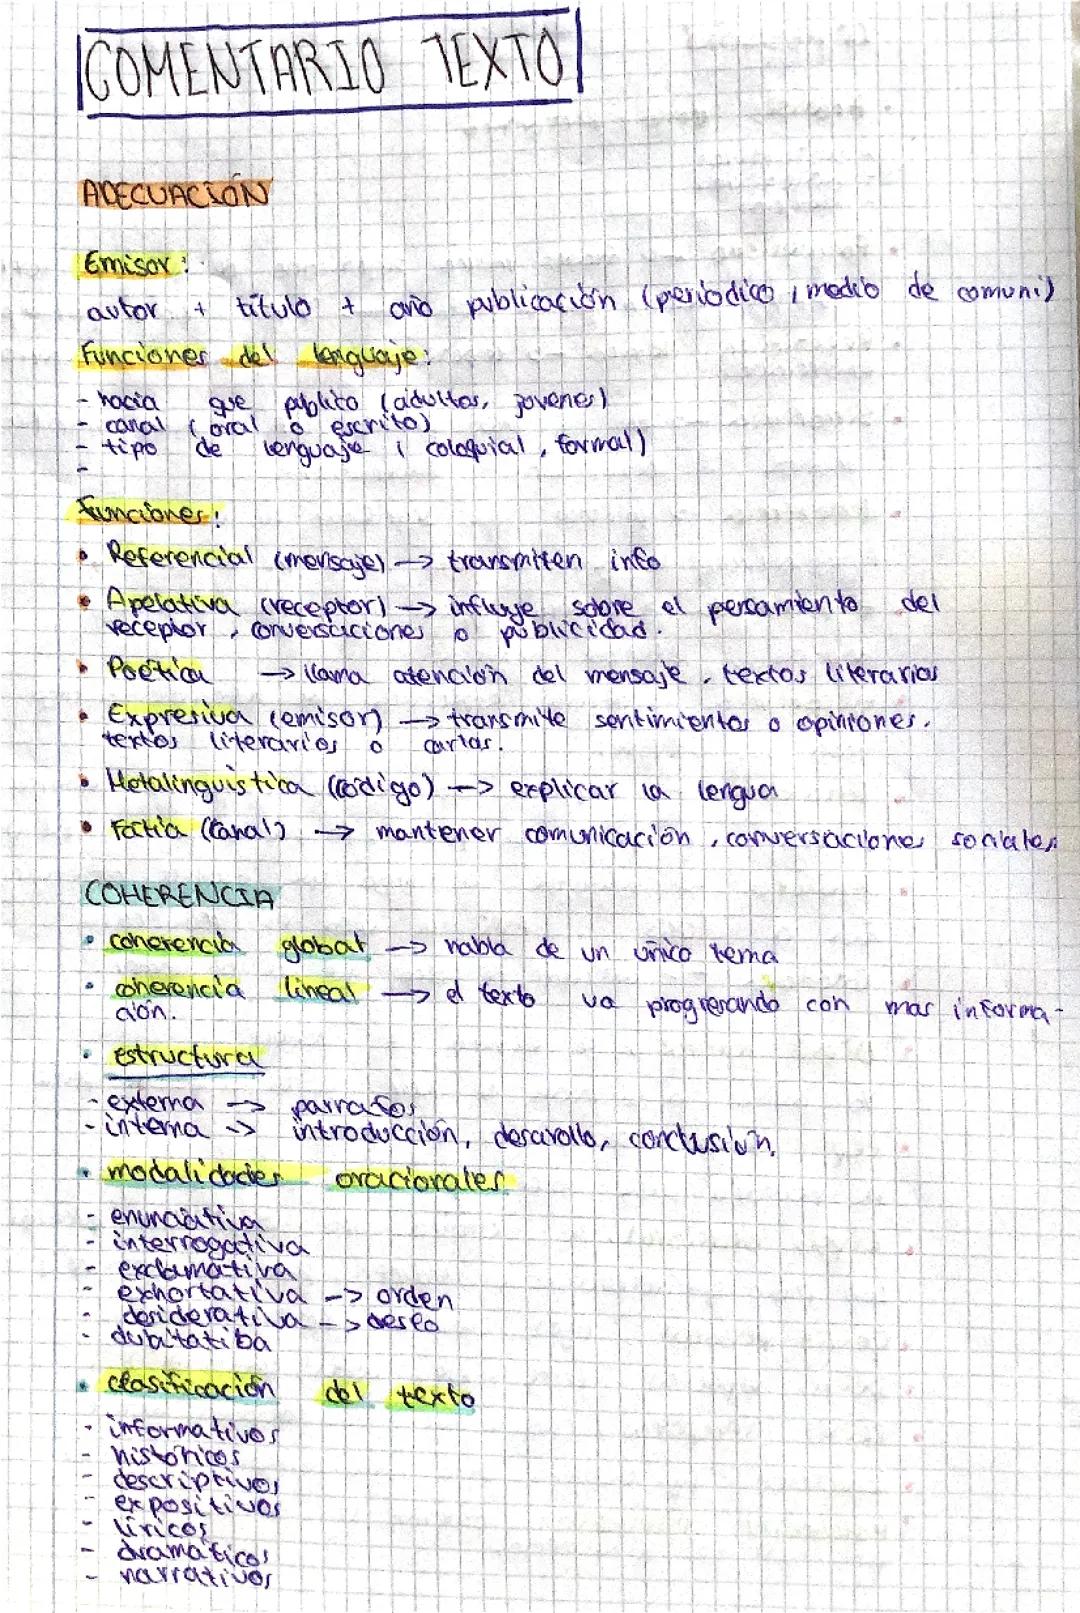 COMENTARIO TEXTO
ADECUACIÓN
Emisor:
autor + título + año publicación (periódico, medio de comuni)
Funciones del lenguaje:
- hacia que público (adultos, jovenes)
- canal (oral o escrito)
- tipo de lenguaje (coloquial, formal)
-
Funciones:
• Referencial (mensaje) → transmiten info
• Apelativa (receptor) → influye sobre el pensamiento del
receptor, conversaciones o publicidad.
• Poética → llama atención del mensaje, textos literarios
• Expresiva (emisor) → transmite sentimientos o opiniones.
textos literarios o cartas.
• Metalinguistica (código) → explicar la lengua
• Factia (canal) → mantener comunicación, conversaciones sociales,
COHERENCIA
• coherencia global → habla de un único tema
• coherencia lineal → el texto va progresando con mas informa-
ción.
• estructura
- externa → parrafos
- interna → introducción, desarollo, conclusión.
• modalidades oracionales
- enunciativa
- interrogativa
- exclamativa
- exhortativa -> orden
- desiderativa -> deseo
- dubitatiba
• clasificación del texto
- informativos
- históricos
- descriptivos
- expositivos
- líricos
- dramáticos
- narrativos